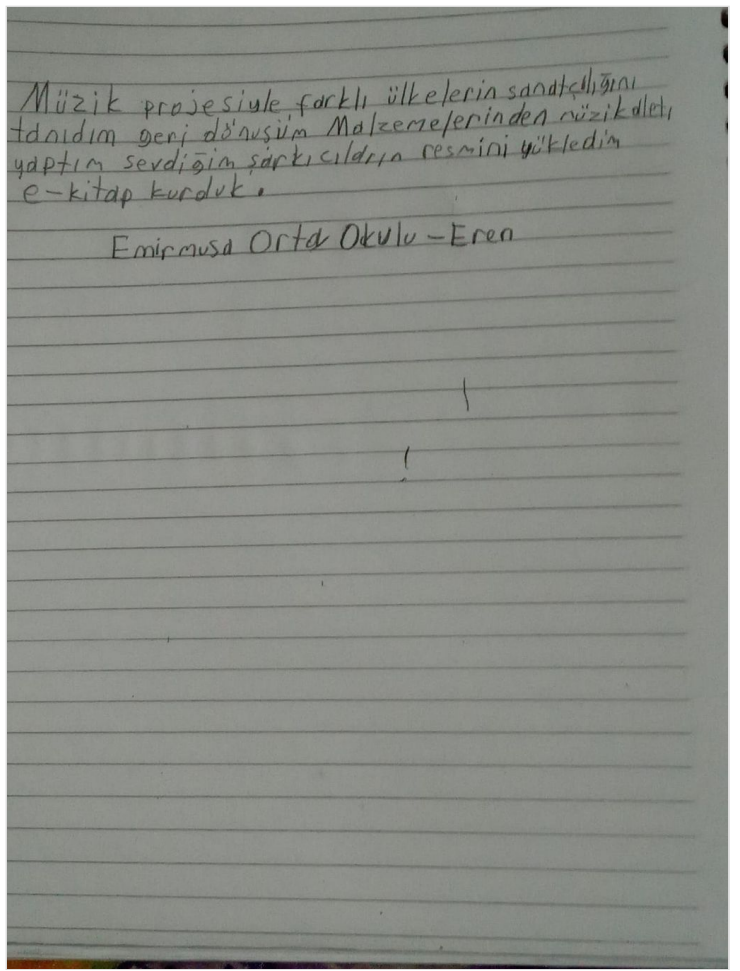 Müzik projesiyle farklı ülkelerin sanatçılığını
tanıdım geri dönüşüm Malzemelerinden müzik aleti
yaptım sevdiğim şarkıcıların resmini yükledim
e-kitap kurduk.
Emirmusa Orta Okulu - Eren